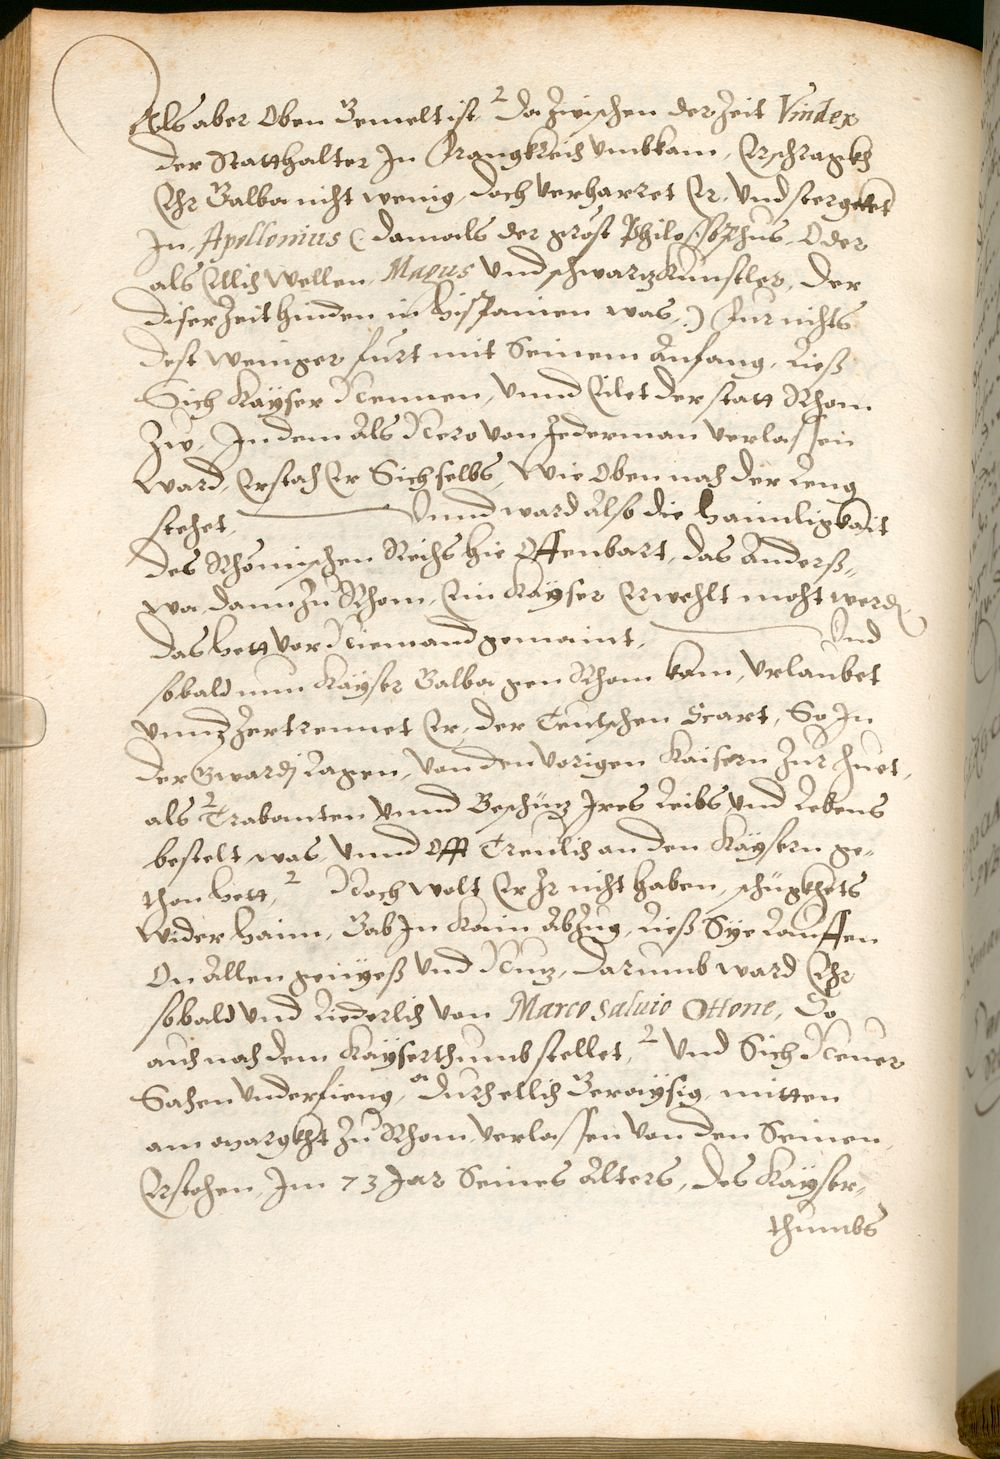 Als aber Oben Gemelt ist, Da zwischen der Zeit Vindex
der Statthalter In Frangkreich Umbkam, Erschragkh
Ehr Galba nicht wenig, doch verharret Er, Und stergekket
In, Apollonius (damals der gröst Philosophus, Oder
als Etlich wellen, Magus Und schwarzkünstler, Der
diser Zeit hinden in Hispanien was,) Fur nichts
dest weniger furt mit Seinem Anfang, Ließ
Sich Kayser Nennen, Unnd Eilet der statt Rhom
Zu, In dem als Nero von Jederman verlassen
ward, Erstach Er Sich selbs, Wie Oben nach der Leng
stehet, Unnd ward also die haimligkait
des Rhömischen Reichs hie Offenbart, das Anderß=
wo, dann zu Rhom, Ein Kayser Erwehlt möcht werden
Das hett vor Niemand gemaint, Und
sobald nun Kayser Galba gen Rhom kam, Urlaubet
Unnd Zertrennet Er, der Teutschen Scart, So In
der Gwardj Lagen, von den vorigen Kaisern zur huet,
als Trabanten Unnd Beschütz Ires Leibs Und Lebens
bestelt was, Unnd Offt Treulich an den Kaysern ge=
than hett, Noch wolt Er Ir nicht haben, schigkhets
wider haim, Gab In Kain Abzug, Ließ Sye Lauffen
On Allen genyeß Und Nutz, Darumb ward Ehr
sobald Und Liederlich von Marco Saluio Ottone, Do
auch nach dem Kayserthumb stellet, Und Sich Neuer
Sachen Underfieng, Durch etlich Geraysig, mitten
am margkht zu Rhom, verlassen von den Seinen
Erstochen, Im 73 Jar Seines Alters, des Kayser=
thumbs